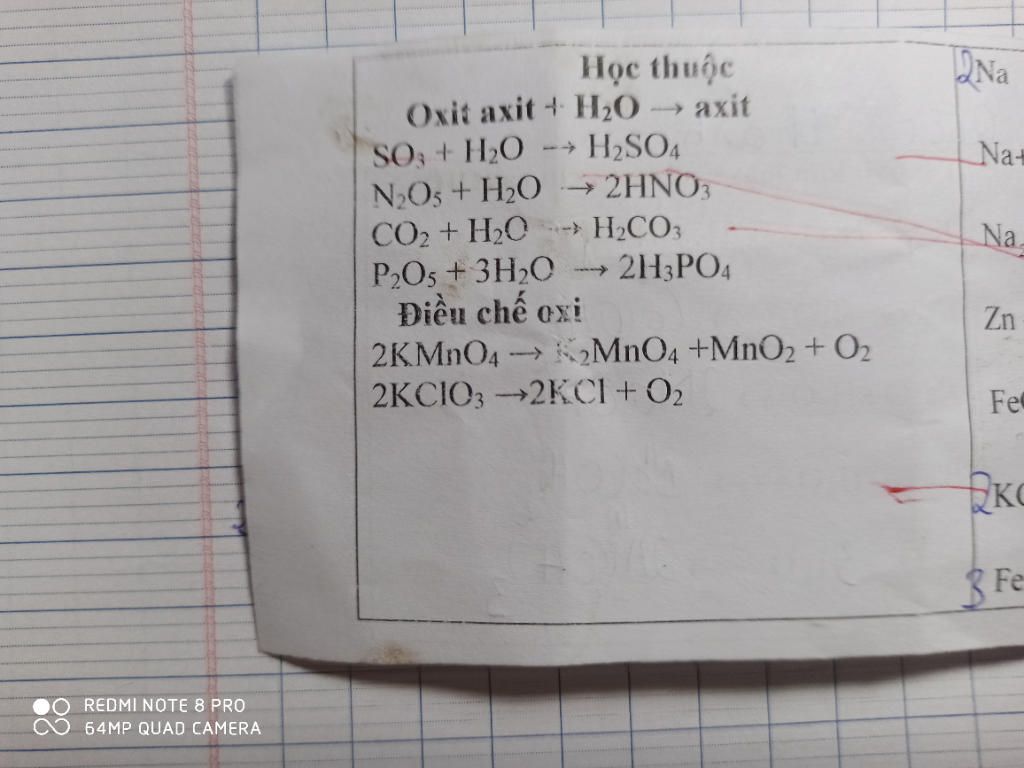 Học thuộc
Oxit axit + H₂O → axit
SO₃ + H₂O → H₂SO₄
N₂O₅ + H₂O → 2HNO₃
CO₂ + H₂O → H₂CO₃
P₂O₅ + 3H₂O → 2H₃PO₄
Điều chế oxi
2KMnO₄ → K₂MnO₄ +MnO₂ + O₂
2KClO₃ →2KCl + O₂
2Na
Na+
Na₂
Zn
Fe
2KC
3 Fe
REDMI NOTE 8 PRO
64MP QUAD CAMERA